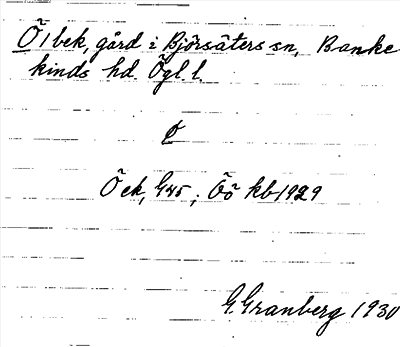 Ölbek, gård i Björsäters sn, Banke
kinds hd. Ögl. l.
Öek, G45; Öö kb 1929
G. Granberg 1930